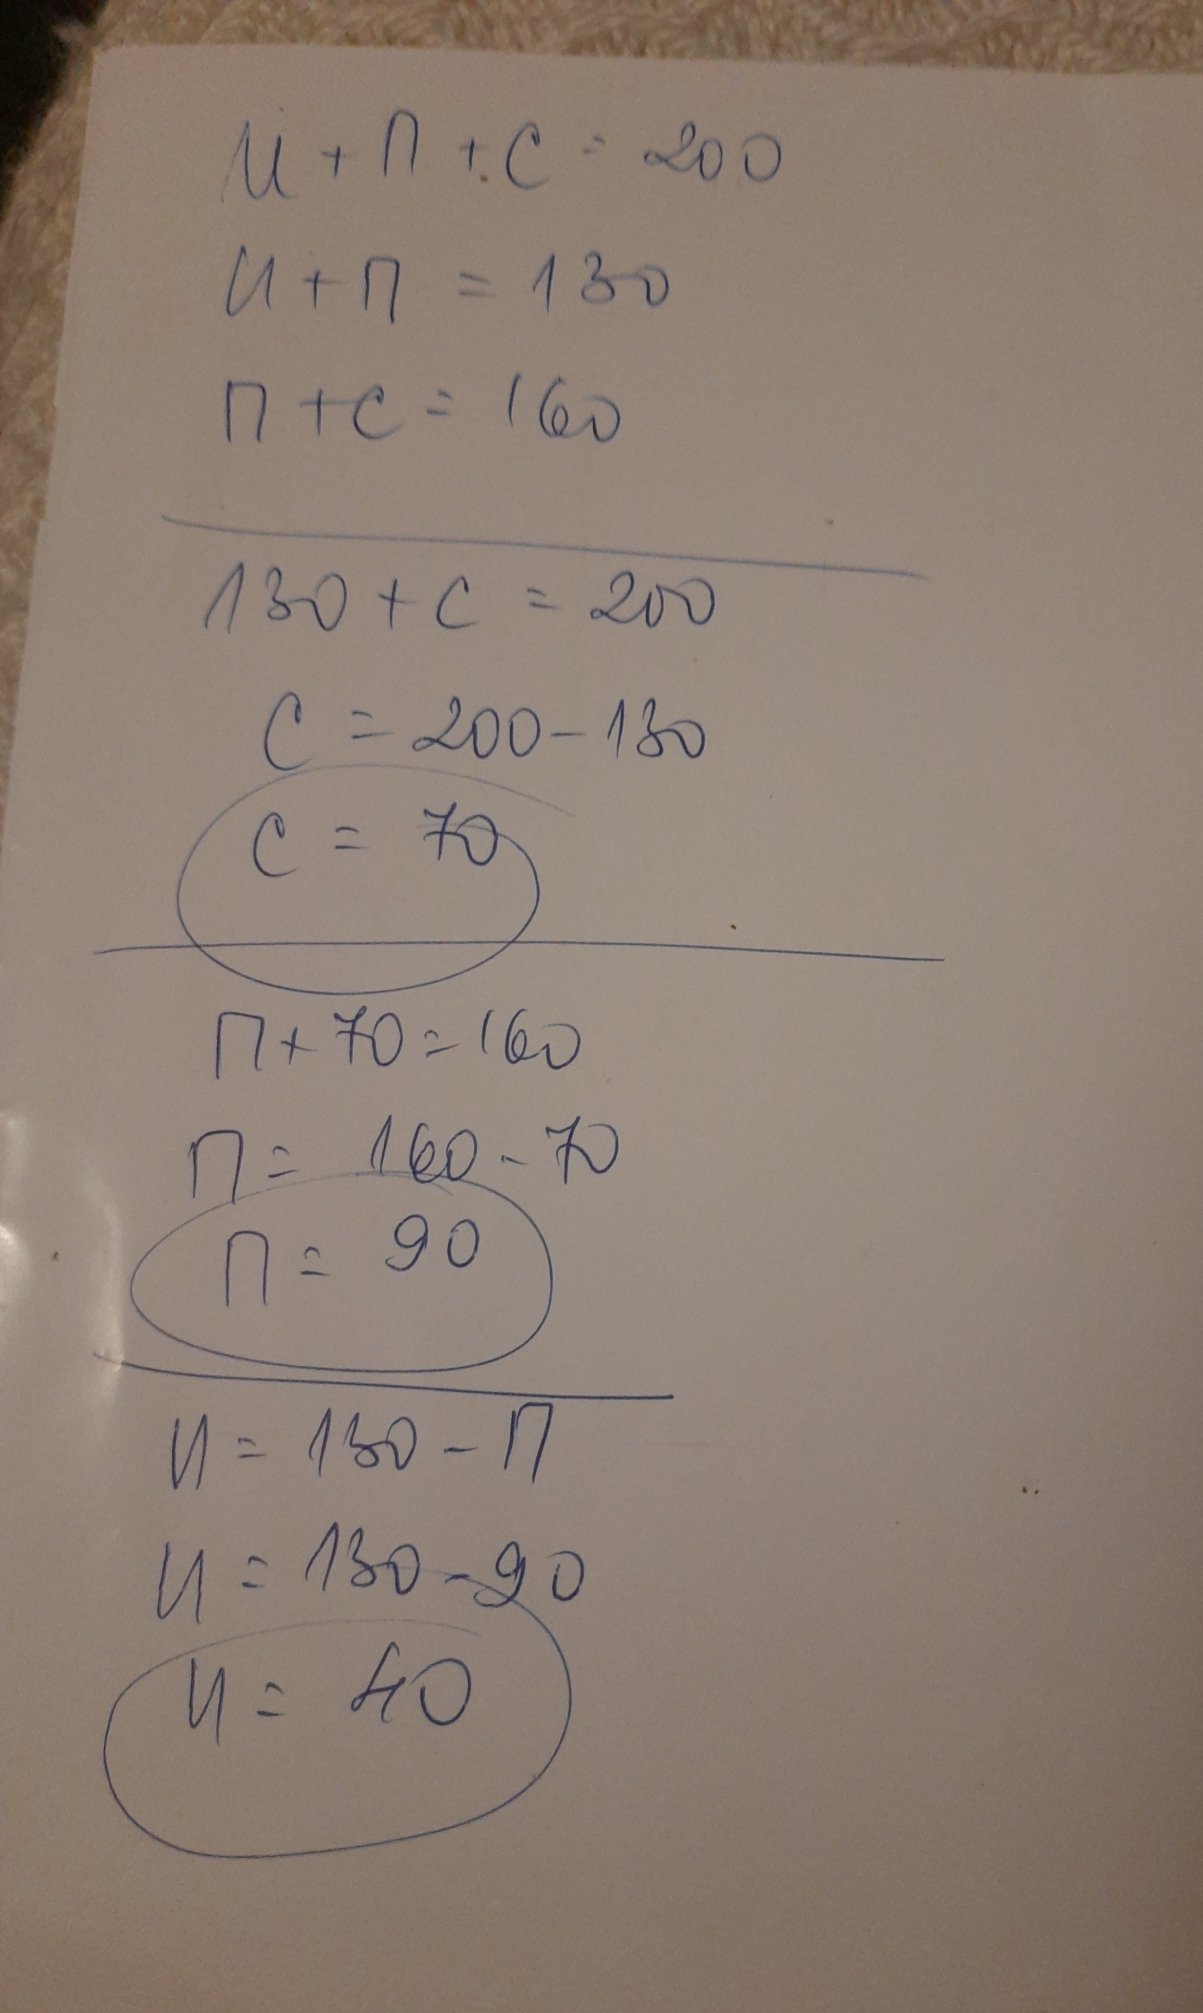 И + П + С = 200
И + П = 130
П + С = 160
130 + С = 200
С = 200 - 130
С = 70
П + 70 = 160
П = 160 - 70
П = 90
И = 130 - П
И = 130 - 90
И = 40